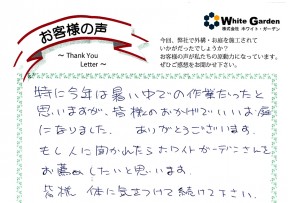 お客様の声
～ Thank You
Letter ～
White Garden
株式会社 ホワイト・ガーデン
今回、弊社で外構・お庭を施工されて
いかがだったでしょうか？
お客様の声が私たちの原動力になっています。
ぜひご感想をお聞かせ下さい。
特に今年は暑い中での作業だったと
思いますが、皆様のおかげでいいお庭
になりました。 ありがとうございます。
もし人に聞かれたらホワイトガーデンさんを
お薦めしたいと思います。
皆様、体に気をつけて続けて下さい。